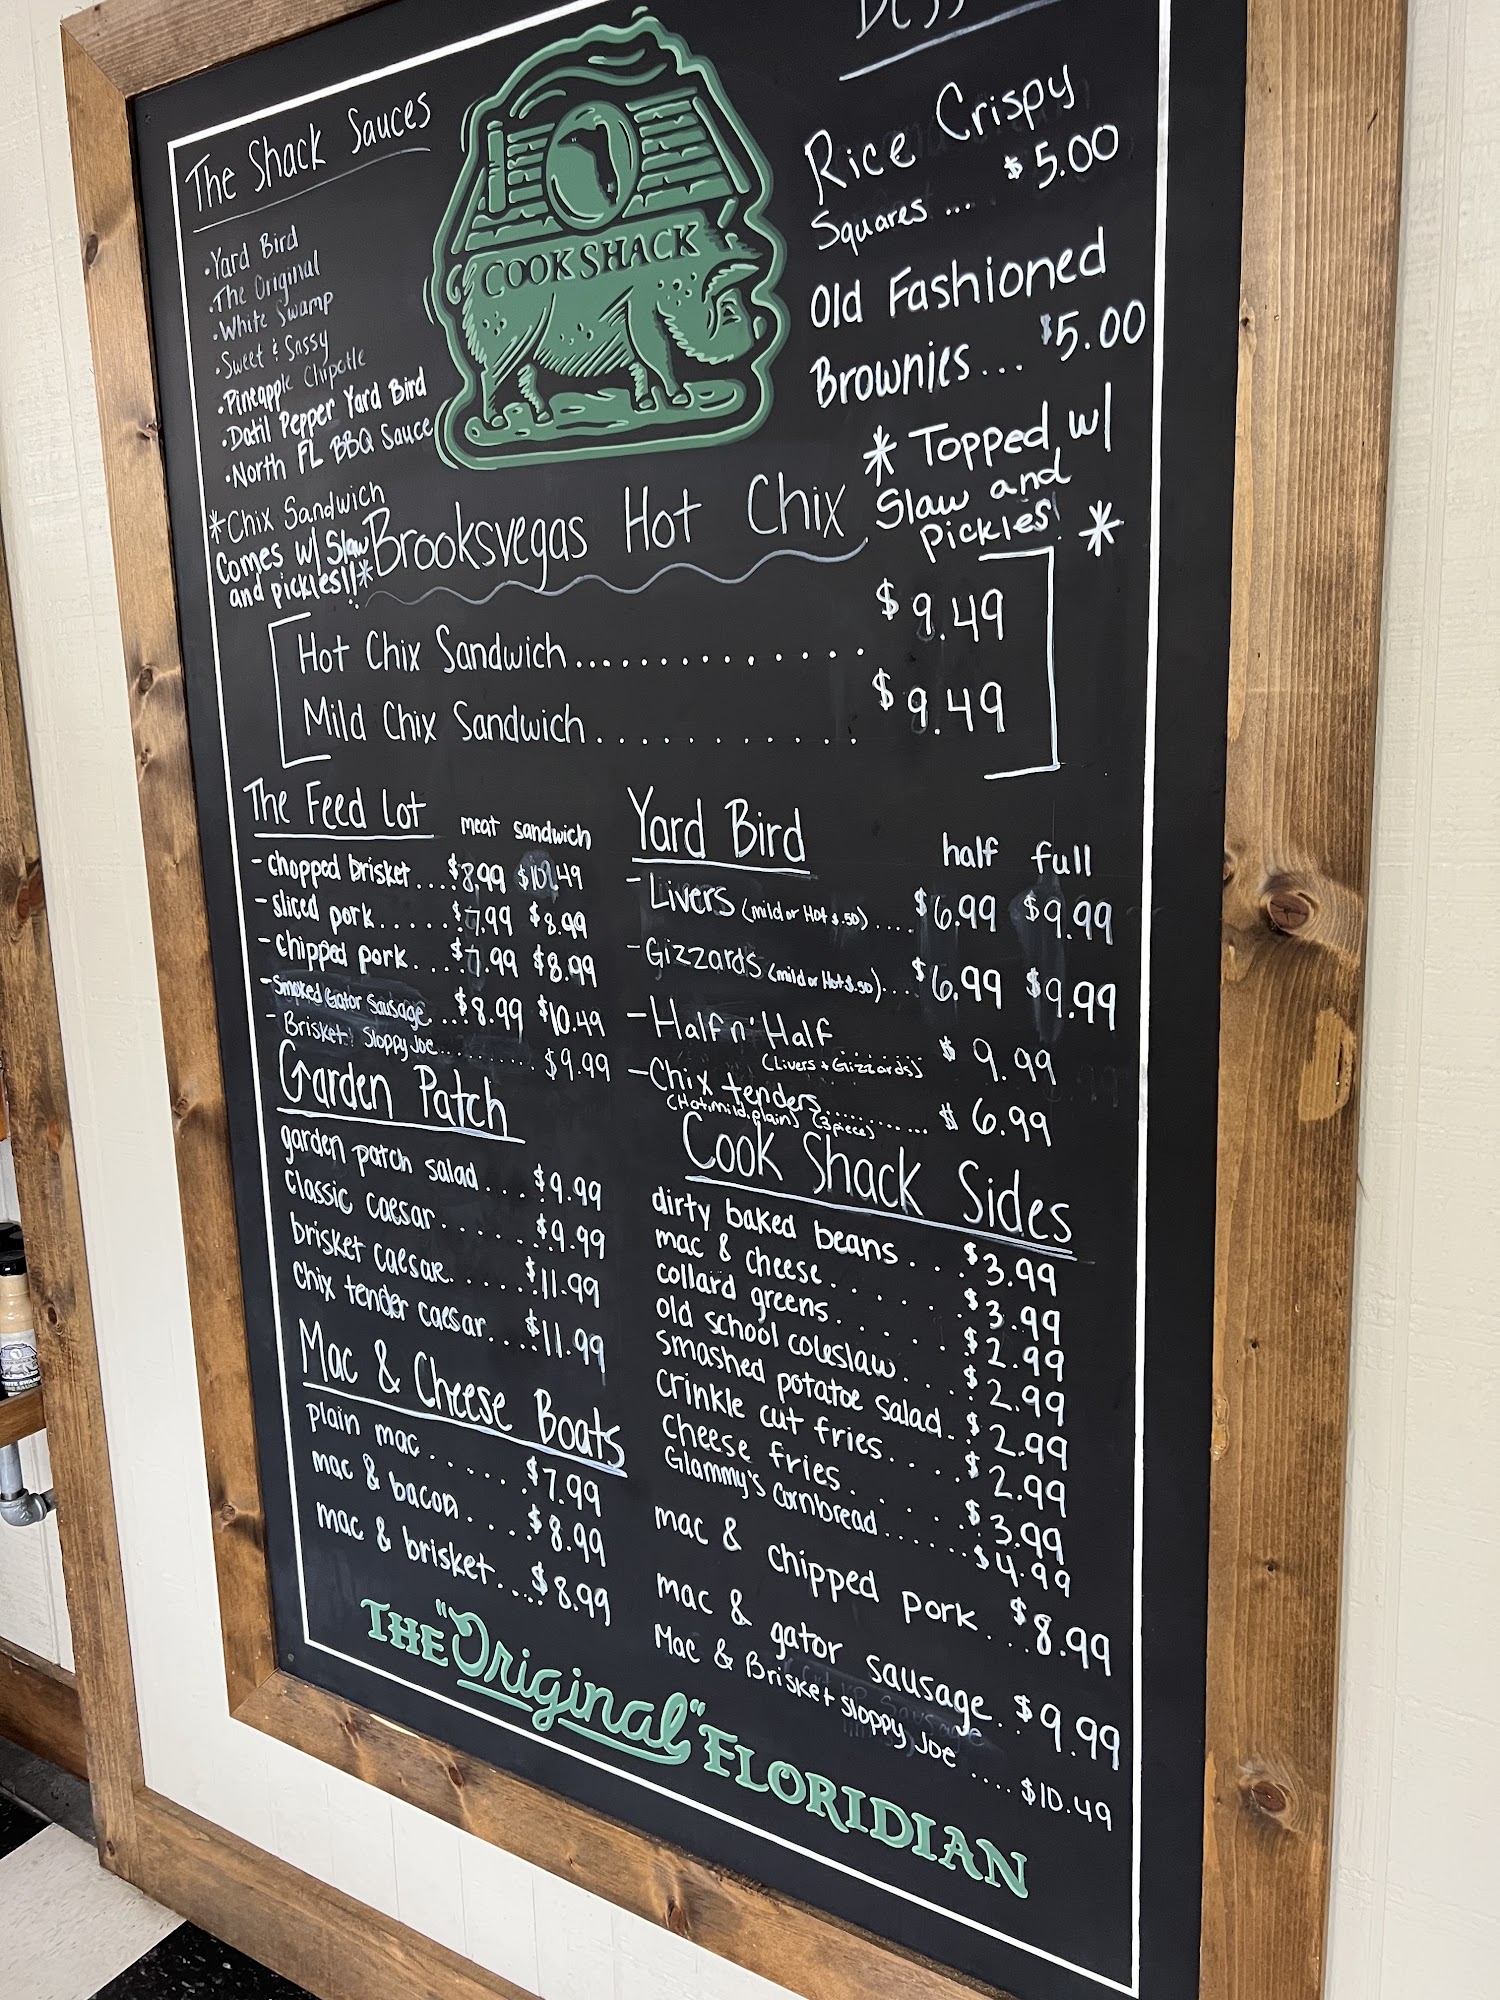 The Shack Sauces
•Yard Bird
•The Original
•White Swamp
•Sweet & Sassy
•Pineapple Chipotle
•Datil Pepper Yard Bird
•North FL BBQ Sauce
*Chix Sandwich
Comes w/ Slaw
and pickles!!*
COOK SHACK
Rice Crispy
Squares ... $5.00
Old Fashioned
Brownies... $5.00
* Topped w/
Slaw and
Pickles! *
Brooksvegas Hot Chix
Hot Chix Sandwich.............. $9.49
Mild Chix Sandwich............ $9.49
The Feed Lot meat sandwich
-chopped brisket....$8.99 $10.49
-sliced pork......$7.99 $8.99
-chipped pork....$7.99 $8.99
-Smoked Gator Sausage....$8.99 $10.49
- Brisket Sloppy Joe.......... $9.99
Garden Patch
garden patch salad...$9.99
Classic caesar.......$9.99
brisket caesar......$11.99
chix tender caesar....$11.99
Mac & Cheese Boats
plain mac......$7.99
mac & bacon.....$8.99
mac & brisket....$8.99
Yard Bird half full
-Livers (mild or Hot $.50)....$6.99 $9.99
-Gizzards (mild or Hot $.50)....$6.99 $9.99
-Half n' Half....... $9.99
(Livers + Gizzards)
-Chix tenders............ $6.99
(Hot, mild, plain) (3 piece)
Cook Shack Sides
dirty baked beans...$3.99
mac & cheese.......$3.99
collard greens......$2.99
old school coleslaw....$2.99
smashed potatoe salad..$2.99
crinkle cut fries....$2.99
cheese fries......$3.99
Glammy's Cornbread.......$4.99
mac & chipped pork...$8.99
mac & gator sausage..$9.99
Mac & Brisket Sloppy Joe ....$10.49
THE "Original" FLORIDIAN